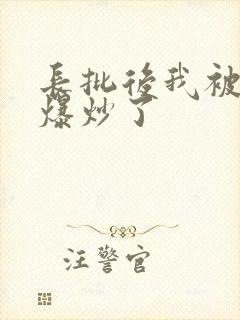 長批後我被
爆炒了
汪警官